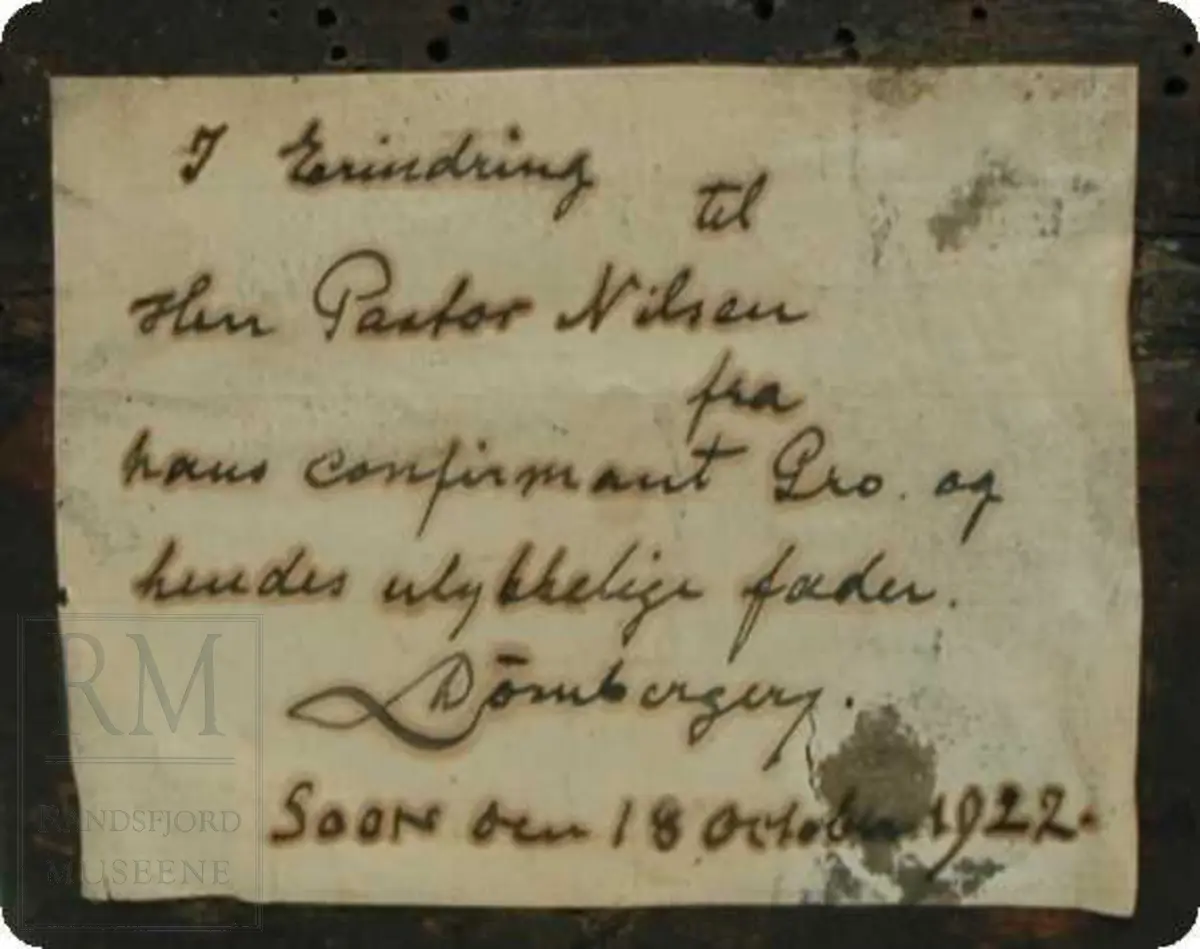 I Erindring
til
Herr Pastor Nilsen
fra
hans confirmant Gro. og
hendes ulykkelige fader.
Soon den 18 October 1922.
RM
RANDSFJORD
MUSEENE